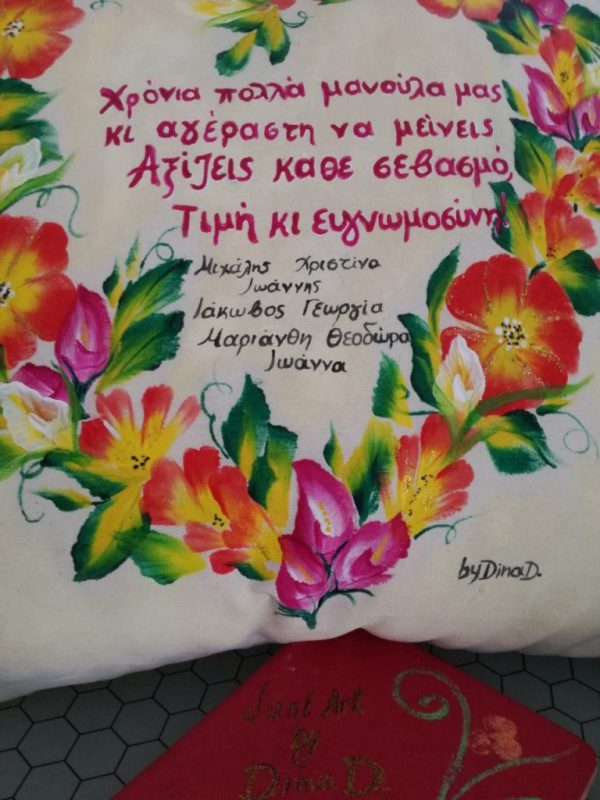 Χρόνια πολλά μανούλα μας
κι αγέραστη να μείνεις
Αξίζεις καθε σεβασμό,
Τιμή κι ευγνωμοσύνη!
Μιχάλης Χριστίνα
Ιωάννης
Ιάκωβος Γεωργία
Μαριάνθη Θεοδώρα
Ιωάννα
by Dina D.
Just Art
by
Dina D.